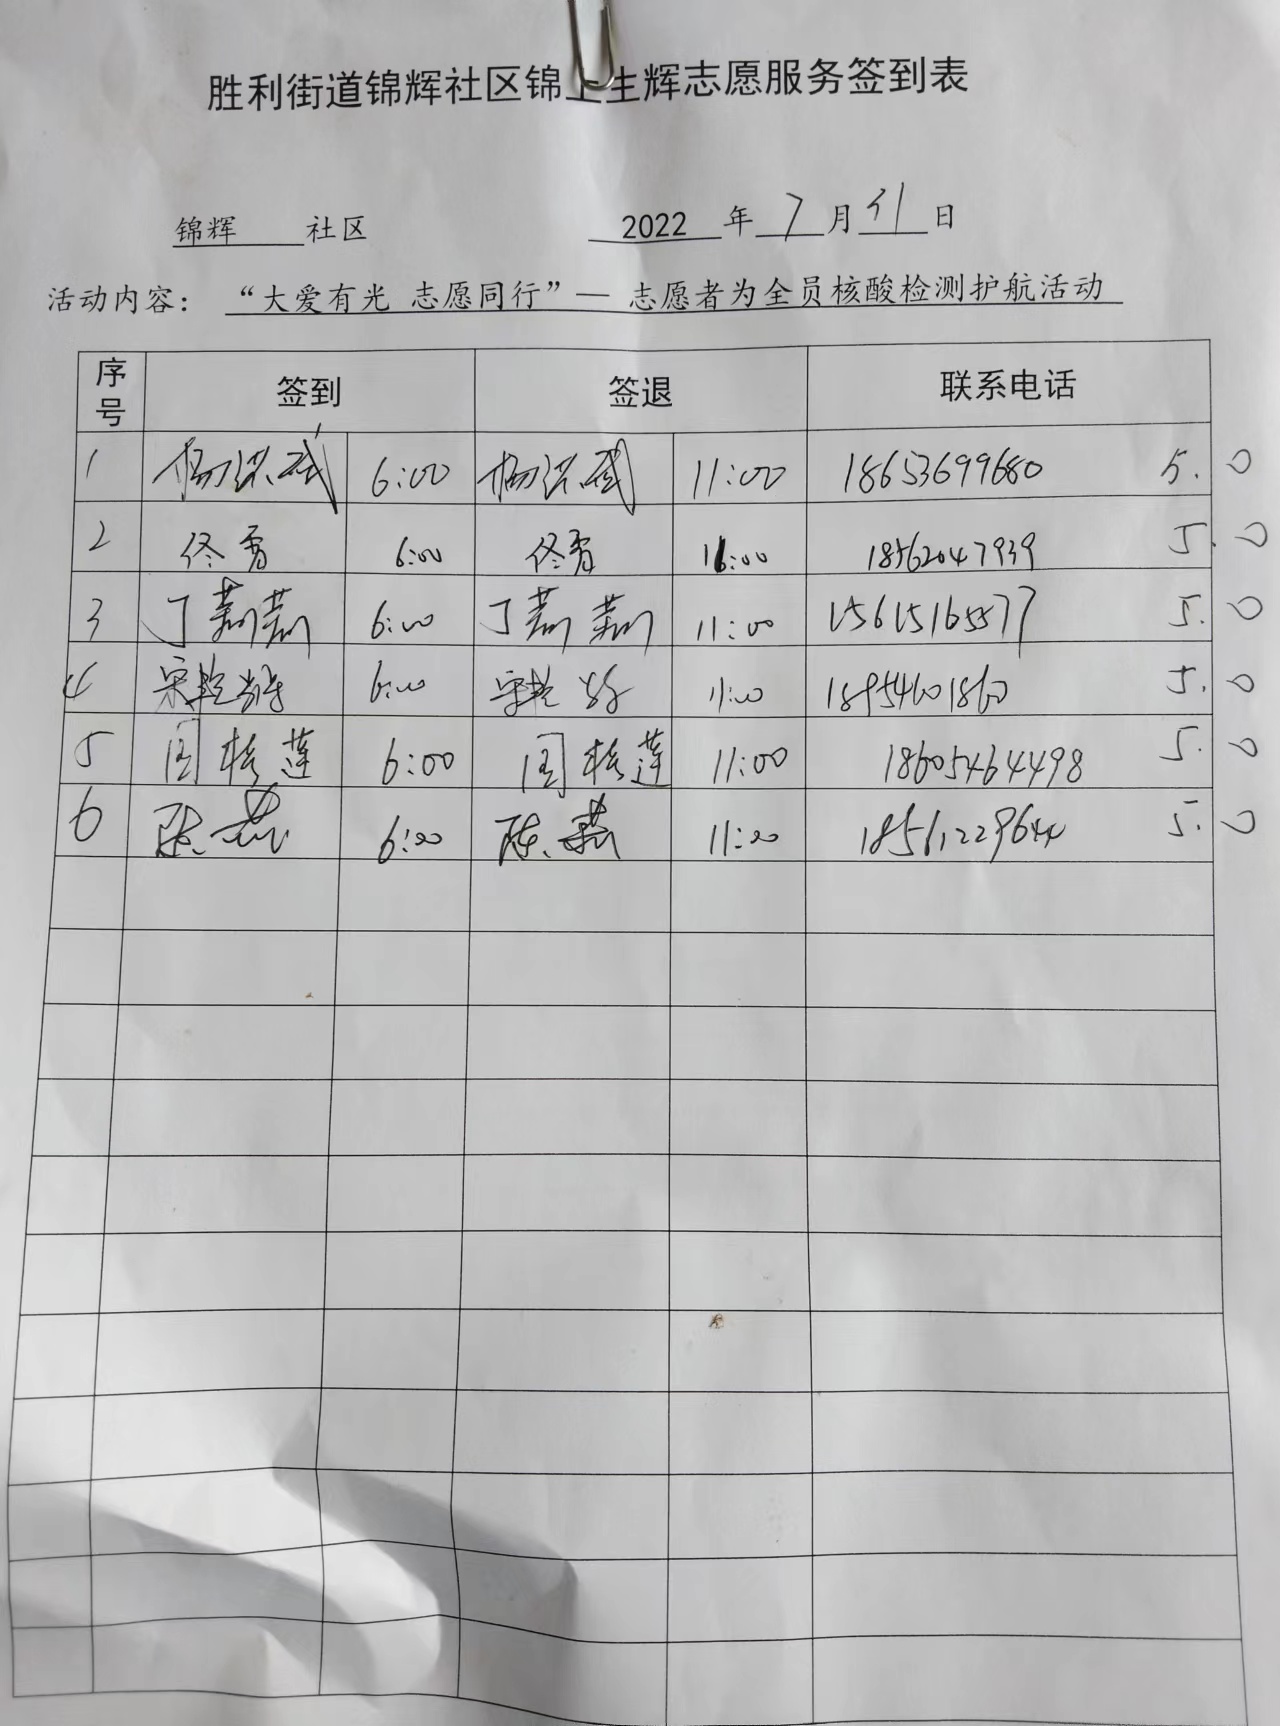 胜利街道锦辉社区锦上生辉志愿服务签到表
锦辉 社区 2022 年 7 月 31 日
活动内容： “大爱有光 志愿同行”— 志愿者为全员核酸检测护航活动
序号 签到 签退 联系电话
1 杨洪斌 6:00 杨洪斌 11:00 18653699680 5.0
2 佟香 6:00 佟香 11:00 18562047939 5.0
3 丁莉莉 6:00 丁莉莉 11:00 15615165577 5.0
4 6:00 11:00 18954601860 5.0
5 周桂莲 6:00 周桂莲 11:00 18605464498 5.0
6 陈燕 6:00 陈燕 11:00 18561229644 5.0